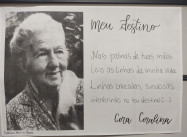 Meu destino
Nas palmas de tuas mãos
Leio as linhas da minha vida.
Linhas cruzadas, sinuosas
interferindo no teu destino.
Cora Coralina